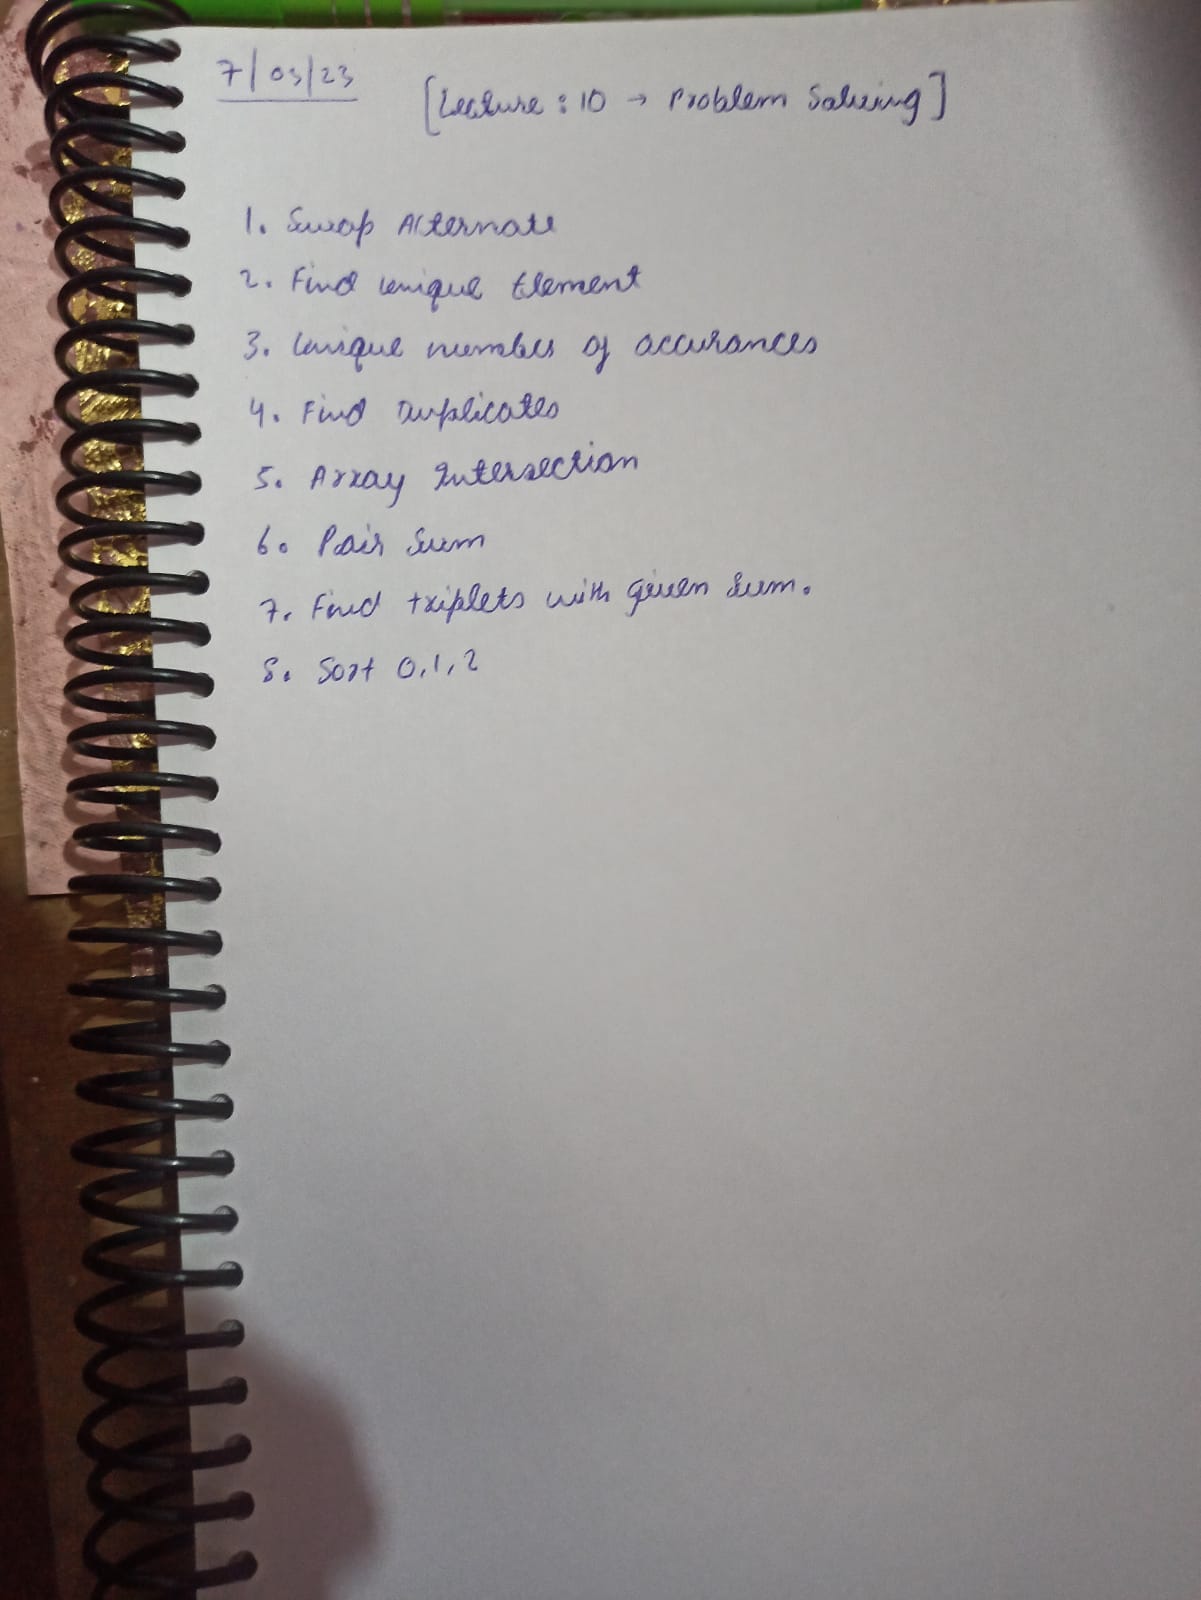 7/03/23
[Lecture : 10 → Problem Solving]
1. Swap Alternate
2. Find unique Element
3. Unique number of accurances
4. Find Duplicates
5. Array Intersection
6. Pair Sum
7. Find triplets with given Sum.
8. Sort 0,1,2